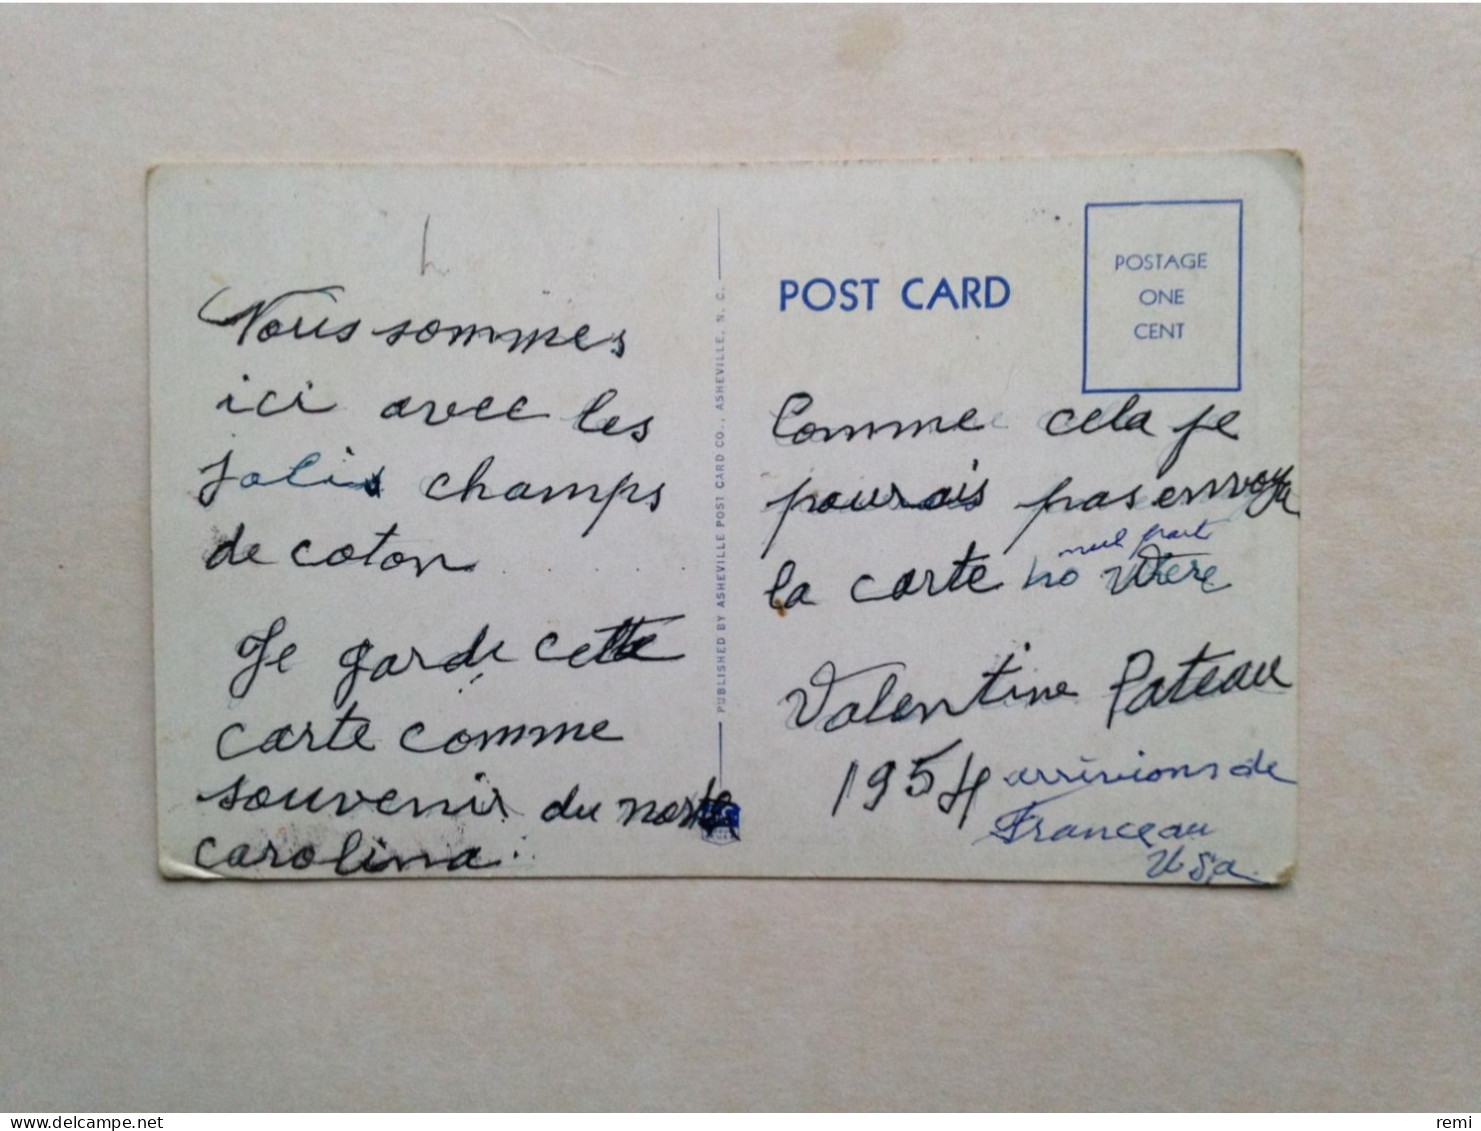 h
Nous sommes
ici avec les
jolis champs
de coton
Je garde cette
carte comme
souvenir du norte
carolina.
PUBLISHED BY ASHEVILLE POST CARD CO., ASHEVILLE, N. C.
POST CARD
POSTAGE
ONE
CENT
Comme cela je
pourais pas envoya
nul part
la carte
Valentine Pateau
1954 arrivions de
France au
Usa
www.delcampe.net
remi